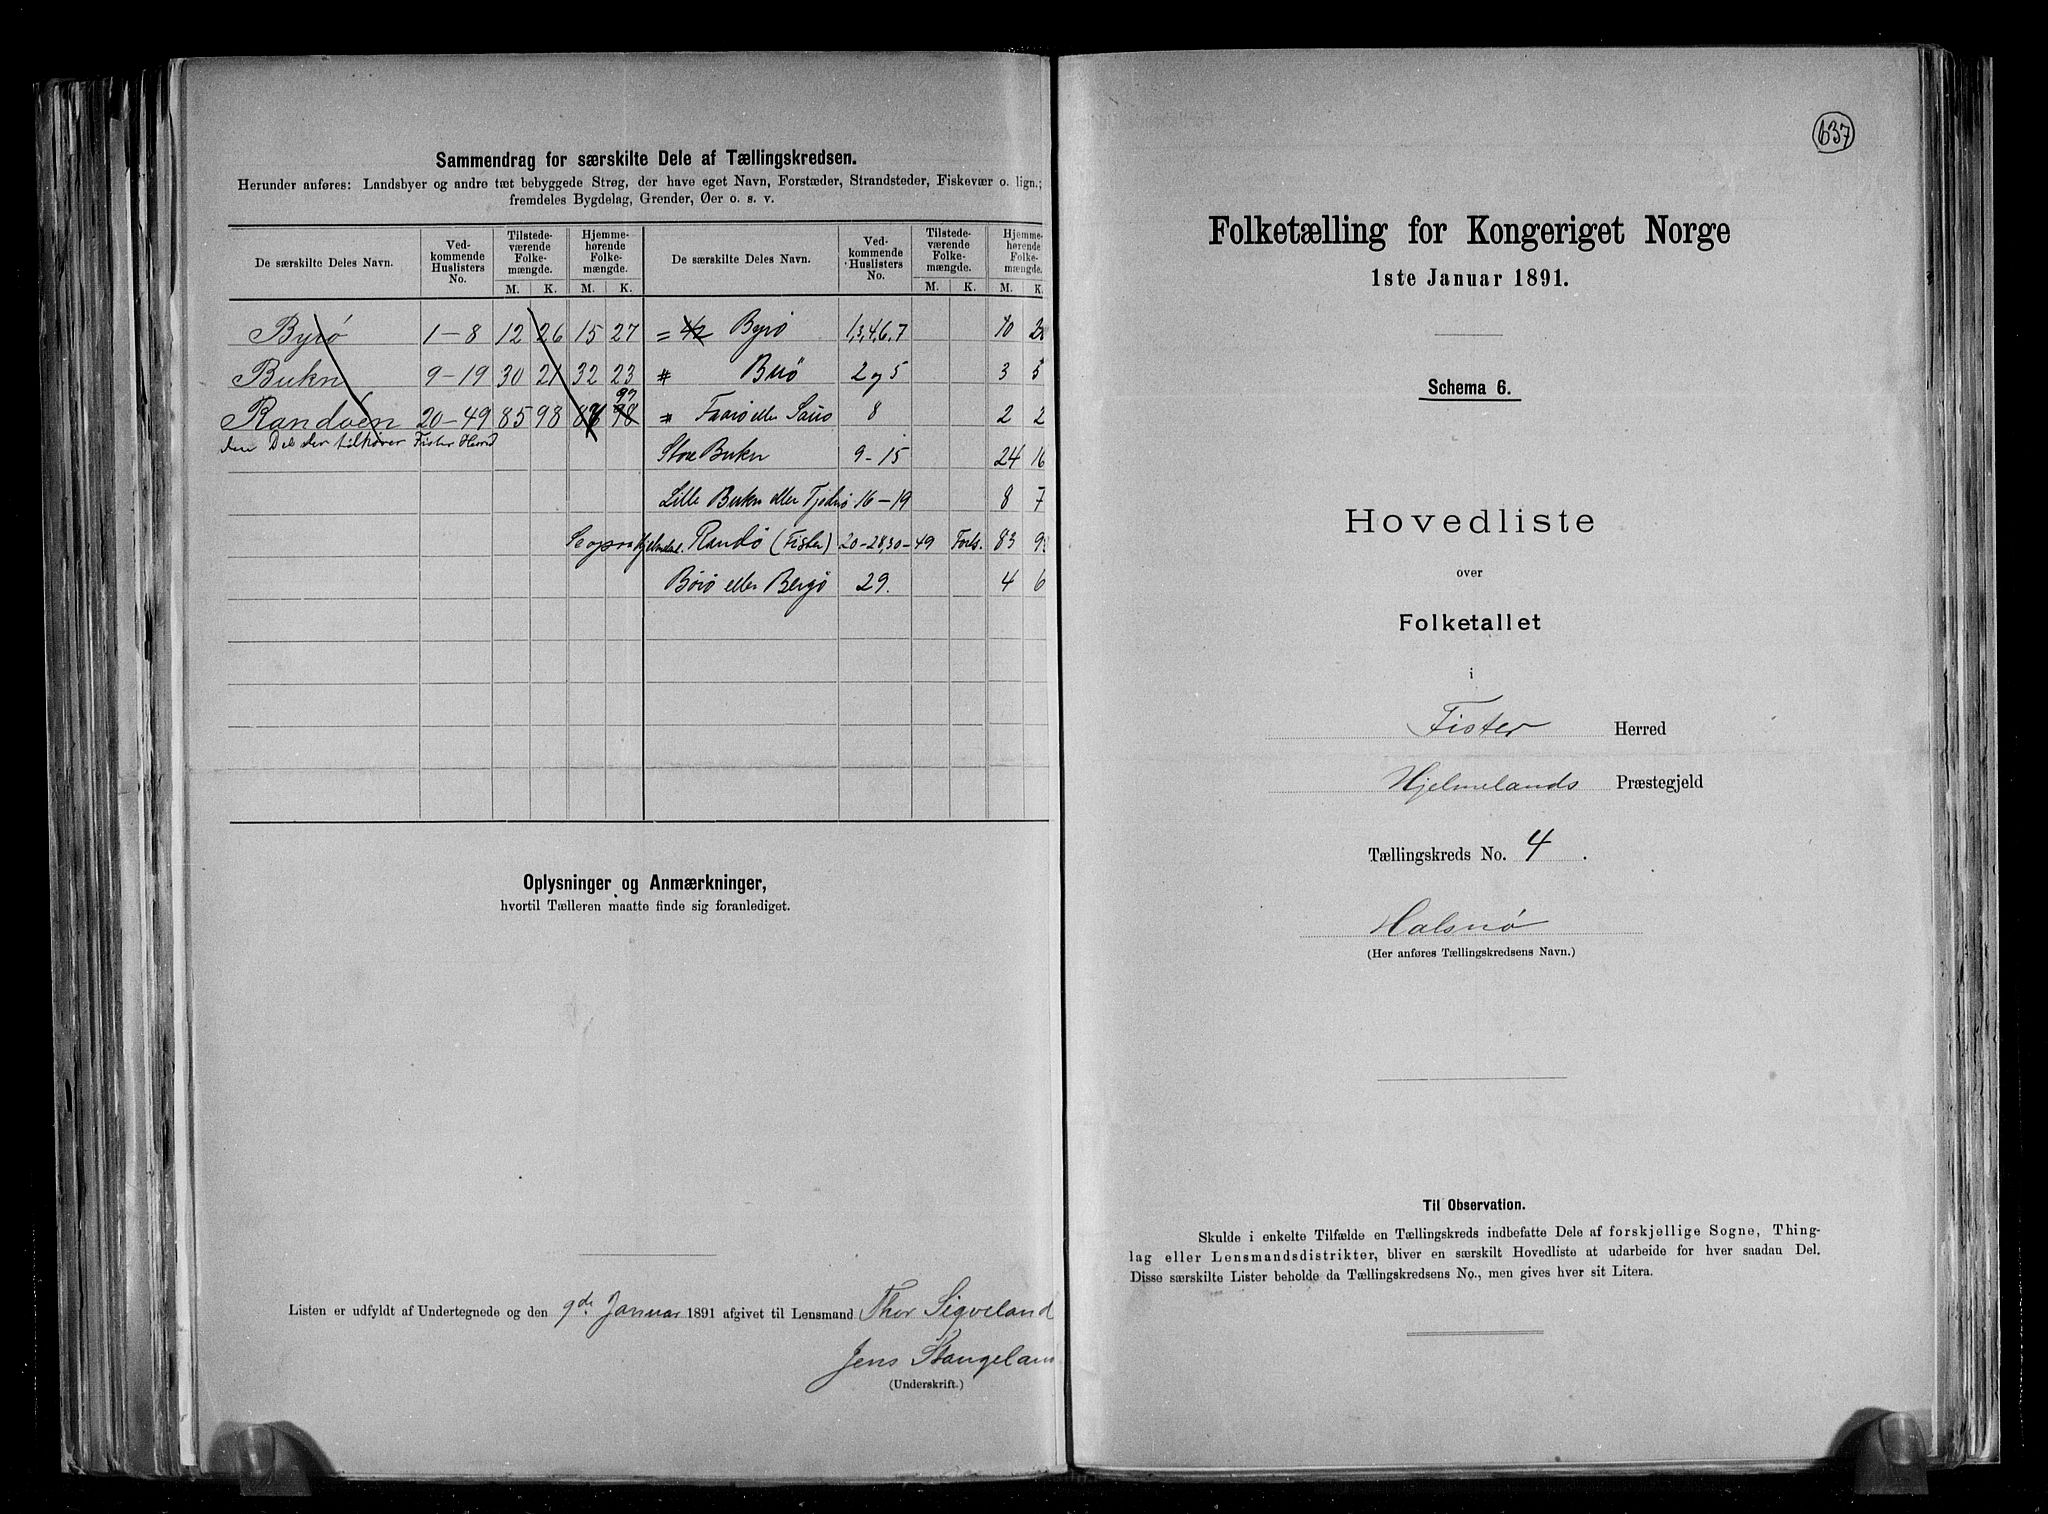 Sammendrag for særskilte Dele af Tællingskredsen.
Herunder anføres: Landsbyer og andre tæt bebyggede Strøg, der have eget Navn, Forstæder, Strandsteder, Fiskevær o. lign.;
fremdeles Bygdelag, Grender, Øer o. s. v.
De særskilte Deles Navn. Ved-kommende Huslisters No. Tilstede-værende Folke-mængde. Hjemme-hørende Folke-mængde. De særskilte Deles Navn. Ved-kommende Huslisters No. Tilstede-værende Folke-mængde. Hjemme-hørende Folke-mængde.
M. K. M. K. M. K. M. K.
Byrø 1-8 12 26 15 27 = Byrø 1,3,4,6,7 10
Bukn 9-19 30 21 32 23 Buø 2 og 5 3 5
Randøen 20-49 85 98 97 8 2 2
den Del der tilhører Fister Herred
Store Bukn 9-15 24 16
Lille Bukn eller 16-19 8 7
Randø (Fister) 20-28,30-49 Forts. 83
Børø eller Bergø 29. 4 6
Oplysninger og Anmærkninger,
hvortil Tælleren maatte finde sig foranlediget.
Listen er udfyldt af Undertegnede og den 9de Januar 1891 afgivet til Lensmand Thor Sigveland
Jens Stangelan
(Underskrift.)
637
Folketælling for Kongeriget Norge
1ste Januar 1891.
Schema 6.
Hovedliste
over
Folketallet
i
Fister Herred
Hjelmelands Præstegjeld
Tællingskreds No. 4.
Halsnø
(Her anføres Tællingskredsens Navn.)
Til Observation.
Skulde i enkelte Tilfælde en Tællingskreds indbefatte Dele af forskjellige Sogne, Thing-
lag eller Lensmandsdistrikter, bliver en særskilt Hovedliste at udarbeide for hver saadan Del.
Disse særskilte Lister beholde da Tællingskredsens No., men gives hver sit Litera.